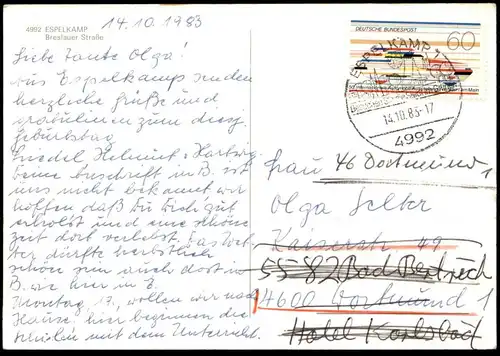 14.10.1983
4992 ESPELKAMP
Breslauer Straße
Liebe Tante Olga!
Aus Espelkamp senden
herzliche Grüße und
gratulieren zum diesj.
Geburtstag
Friedel, Helmut, Hartwig
Deine Anschrift in B. ist
uns nicht bekannt, wir
hoffen daß Du Dich gut
erholst und eine schöne
Zeit dort verlebst. Das Wet-
ter dürfte herbstlich
schön sein auch dort in
B. wie hier in E.
Montag 17. wollen wir nach
Hause, hier beginnen die
Schulen mit dem Unterricht.
DEUTSCHE BUNDESPOST
60
ESPELKAMP 1
14.10.83-17
4992
Frau 46 Dortmund 1
Olga
Kaiserstr. 49
5582 Bad Bertrich
4600 Dortmund 1
Hotel Karlsbad